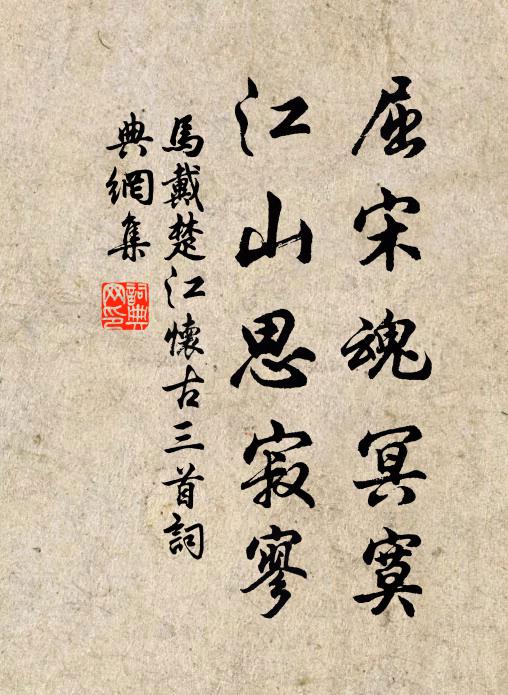 屈宋魂冥寞
江山思寂寥
馬戴楚江懷古三首詞
典網集
詞典
网印